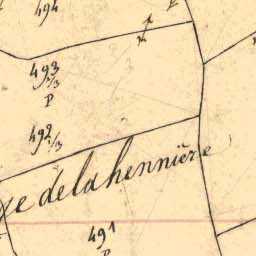 494
493
2/3
P
492
1/3
de la hennière
491
P